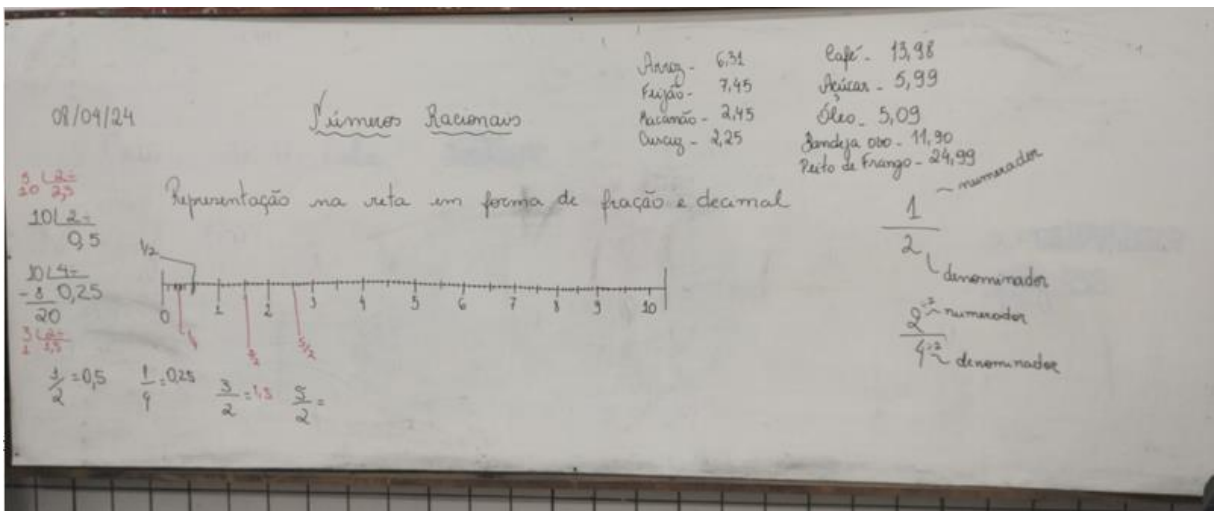 08/04/24
Números Racionais
Arroz - 6,31
Feijão - 7,45
Macarrão - 2,45
2,25
Café - 13,98
Açúcar - 5,99
Óleo - 5,09
Bandeja ovo - 11,90
Peito de Frango - 24,99
Representação na reta em forma de fração e decimal
5 | 2 =
10 2,5
10 | 2 =
0,5
10 | 4 =
- 8 0,25
20
3 | 2 =
1 1,5
1/2
0 1 2 3 4 5 6 7 8 9 10
1/4 3/2 5/2
1/2 = 0,5 1/4 = 0,25 3/2 = 1,5 5/2 =
1 numerador
2 denominador
2 ÷2 numerador
4 ÷2 denominador